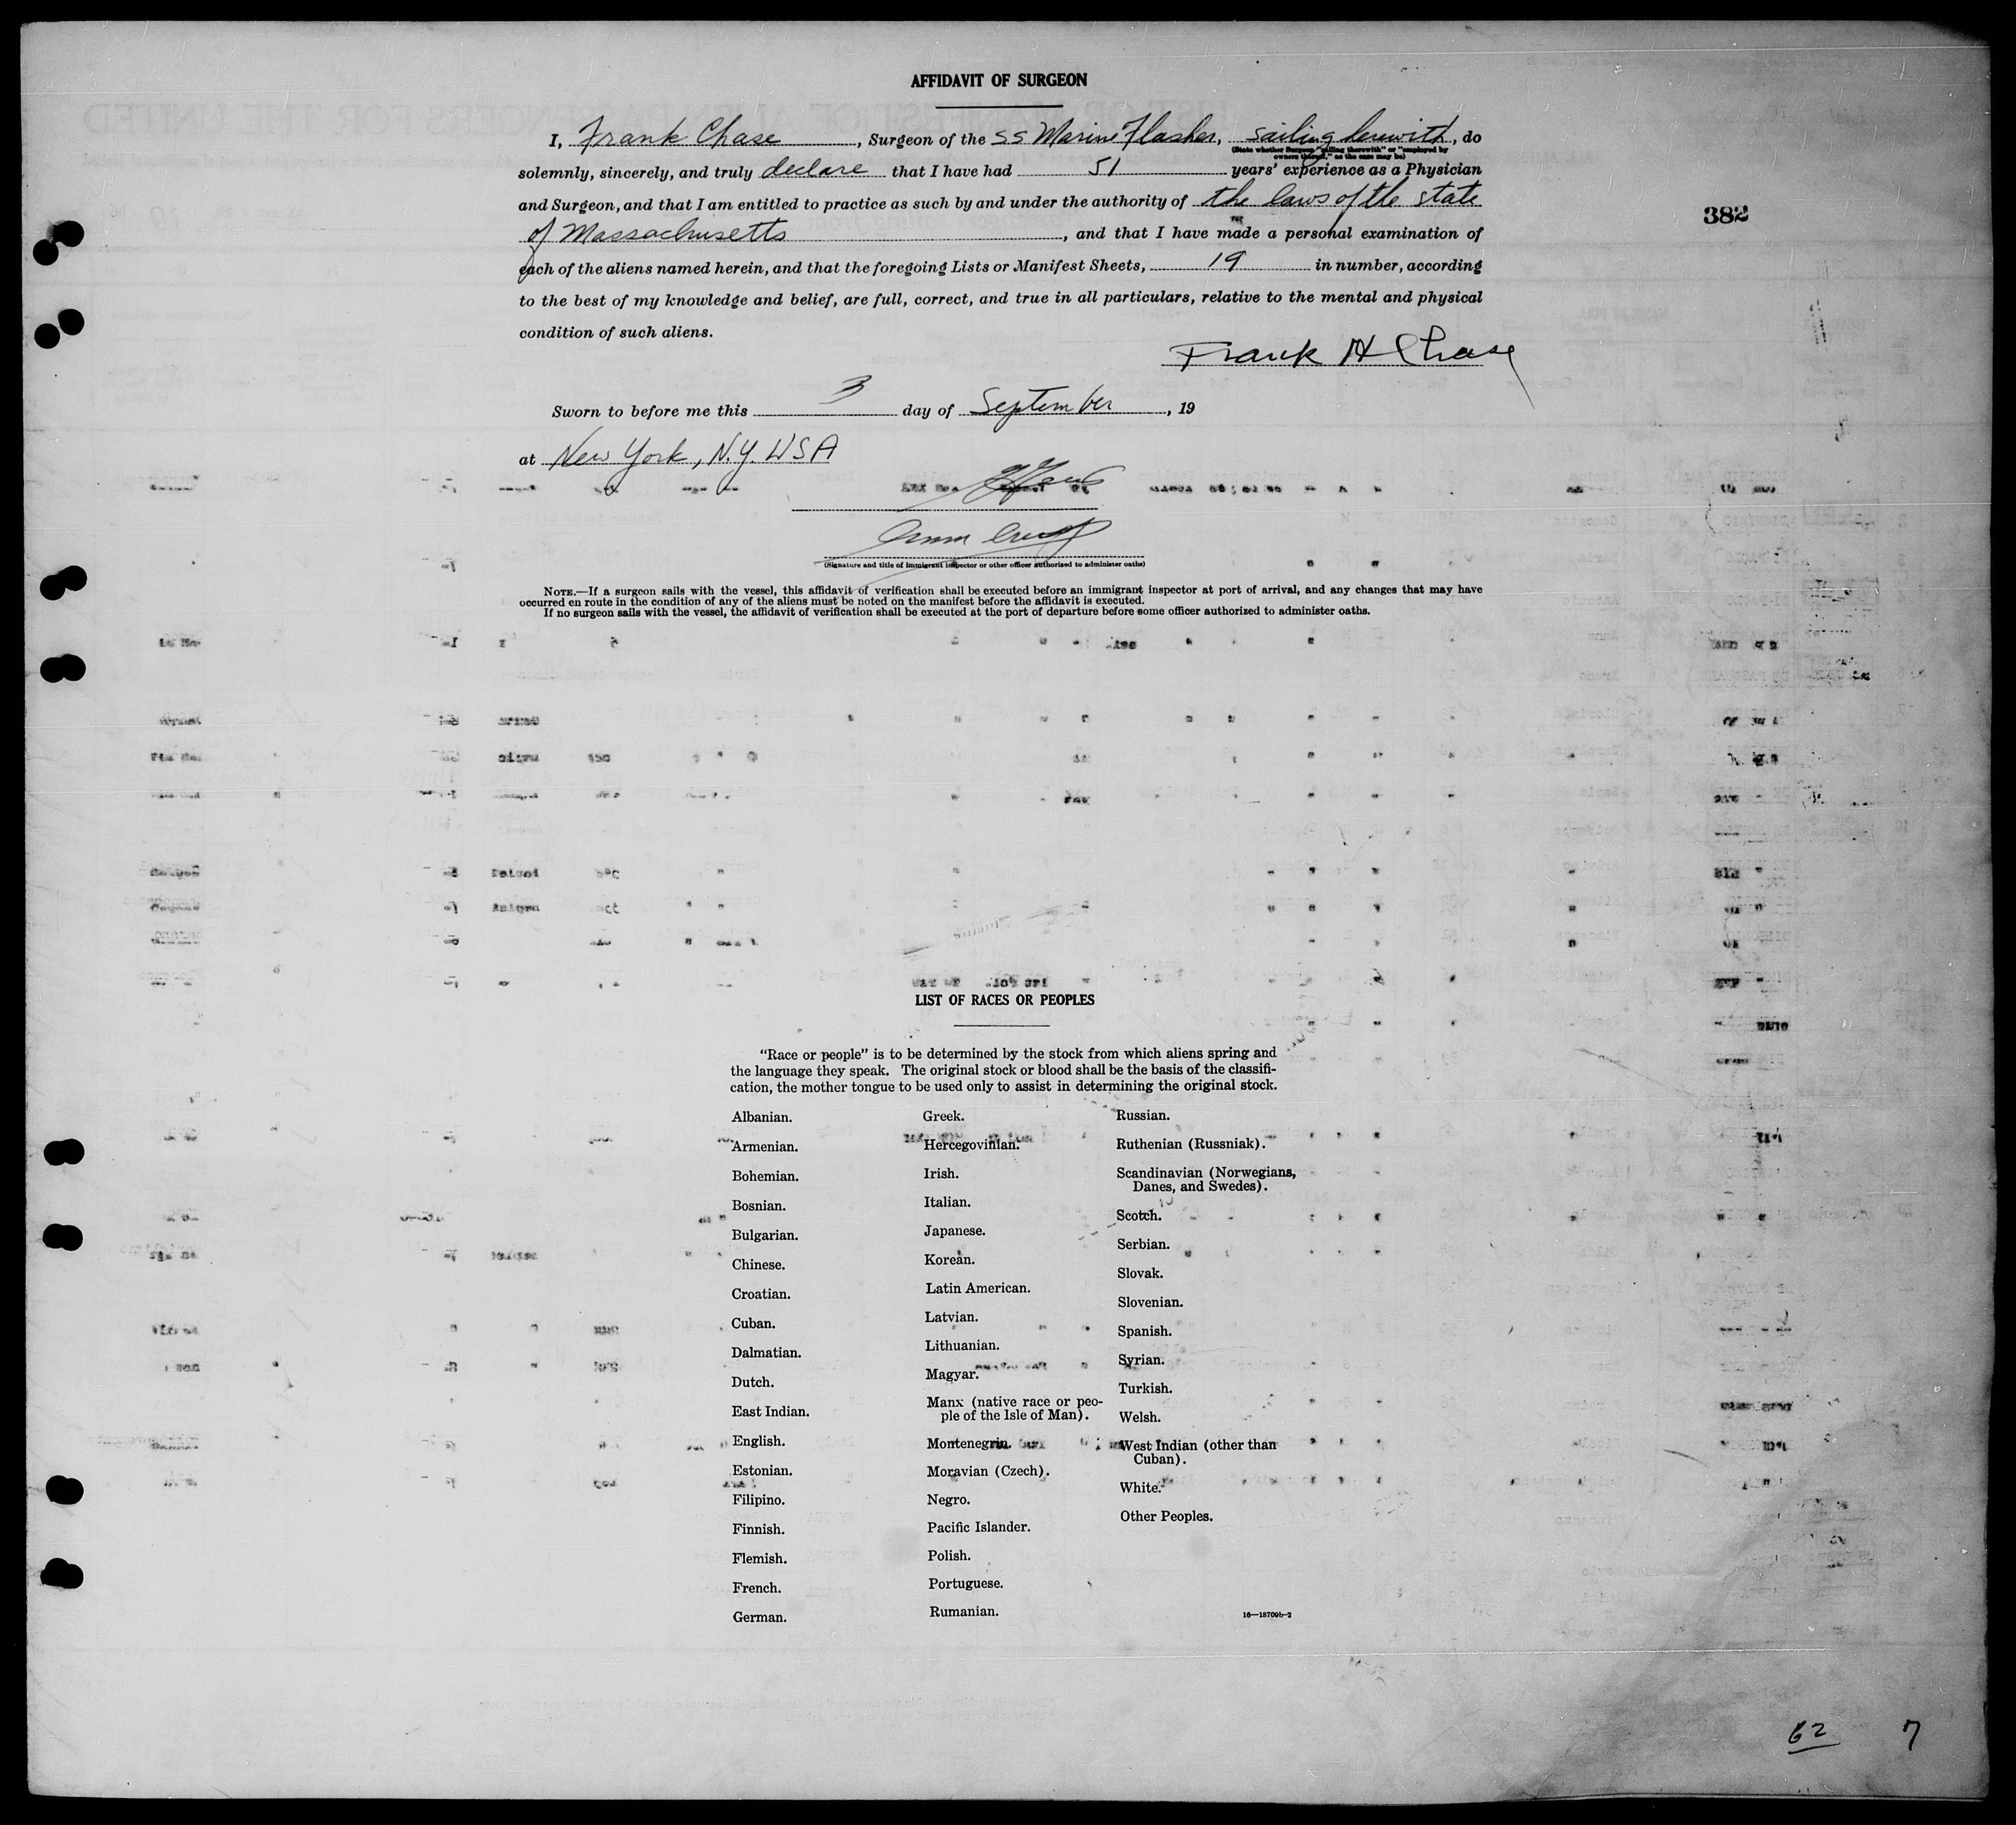 AFFIDAVIT OF SURGEON
I, Frank Chase, Surgeon of the SS Marine Flasher, sailing herewith, do
(State whether Surgeon "sailing therewith" or "employed by
owners thereof," as the case may be)
solemnly, sincerely, and truly declare that I have had 51 years' experience as a Physician
and Surgeon, and that I am entitled to practice as such by and under the authority of the laws of the state
of Massachusetts, and that I have made a personal examination of
each of the aliens named herein, and that the foregoing Lists or Manifest Sheets, 19 in number, according
to the best of my knowledge and belief, are full, correct, and true in all particulars, relative to the mental and physical
condition of such aliens.
382
Frank H Chase
Sworn to before me this 3 day of September, 19
at New York, N.Y. USA
(Signature and title of immigrant inspector or other officer authorized to administer oaths)
NOTE.—If a surgeon sails with the vessel, this affidavit of verification shall be executed before an immigrant inspector at port of arrival, and any changes that may have
occurred en route in the condition of any of the aliens must be noted on the manifest before the affidavit is executed.
If no surgeon sails with the vessel, the affidavit of verification shall be executed at the port of departure before some officer authorized to administer oaths.
LIST OF RACES OR PEOPLES
"Race or people" is to be determined by the stock from which aliens spring and
the language they speak. The original stock or blood shall be the basis of the classifi-
cation, the mother tongue to be used only to assist in determining the original stock.
Albanian.
Armenian.
Bohemian.
Bosnian.
Bulgarian.
Chinese.
Croatian.
Cuban.
Dalmatian.
Dutch.
East Indian.
English.
Estonian.
Filipino.
Finnish.
Flemish.
French.
German.
Greek.
Hercegovinian.
Irish.
Italian.
Japanese.
Korean.
Latin American.
Latvian.
Lithuanian.
Magyar.
Manx (native race or peo-
ple of the Isle of Man).
Montenegrin.
Moravian (Czech).
Negro.
Pacific Islander.
Polish.
Portuguese.
Rumanian.
Russian.
Ruthenian (Russniak).
Scandinavian (Norwegians,
Danes, and Swedes).
Scotch.
Serbian.
Slovak.
Slovenian.
Spanish.
Syrian.
Turkish.
Welsh.
West Indian (other than
Cuban).
White.
Other Peoples.
16—18709b-2
62 7